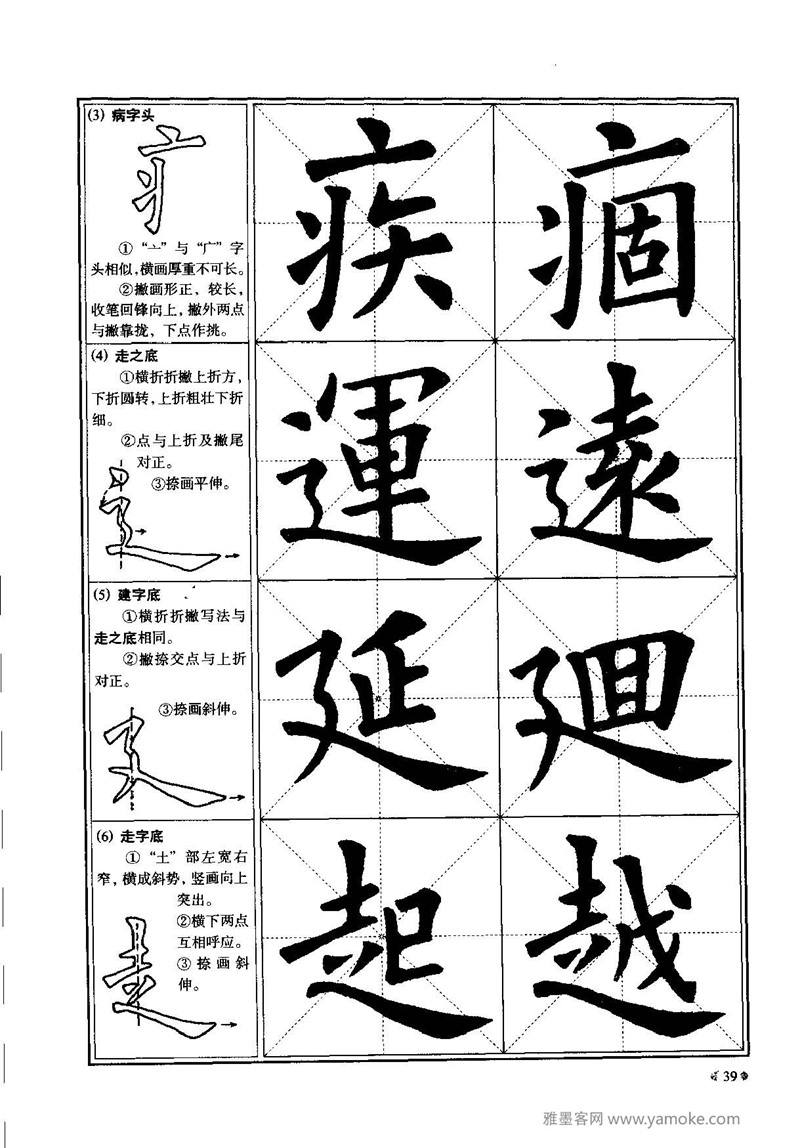 (3) 病字头
①“亠”与“广”字
头相似,横画厚重不可长。
②撇画形正、较长,
收笔回锋向上,撇外两点
与撇靠拢,下点作挑。
疾 痼
(4) 走之底
①横折折撇上折方,
下折圆转,上折粗壮下折
细。
②点与上折及撇尾
对正。
③捺画平伸。
運 遠
(5) 建字底
①横折折撇写法与
走之底相同。
②撇捺交点与上折
对正。
③捺画斜伸。
延 廻
(6) 走字底
①“土”部左宽右
窄,横成斜势,竖画向上
突出。
②横下两点
互相呼应。
③捺画斜
伸。
起 越
39
雅墨客网 www.yamoke.com